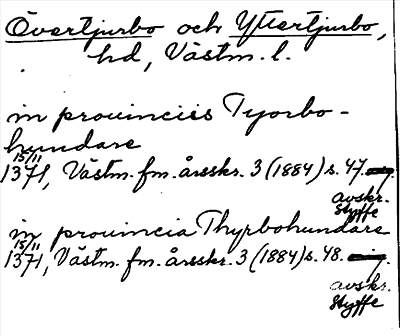 Övertjurbo och Yttertjurbo,
hd, Västm. l.
in provinciis Tyorbo-
hundare
15/11
1371, Västm. fm. årsskr. 3 (1884) s. 47.
avskr.
Styffe
in provincia Thyrbohundare
15/11
1371, Västm. fm. årsskr. 3 (1884) s. 48.
avskr.
Styffe